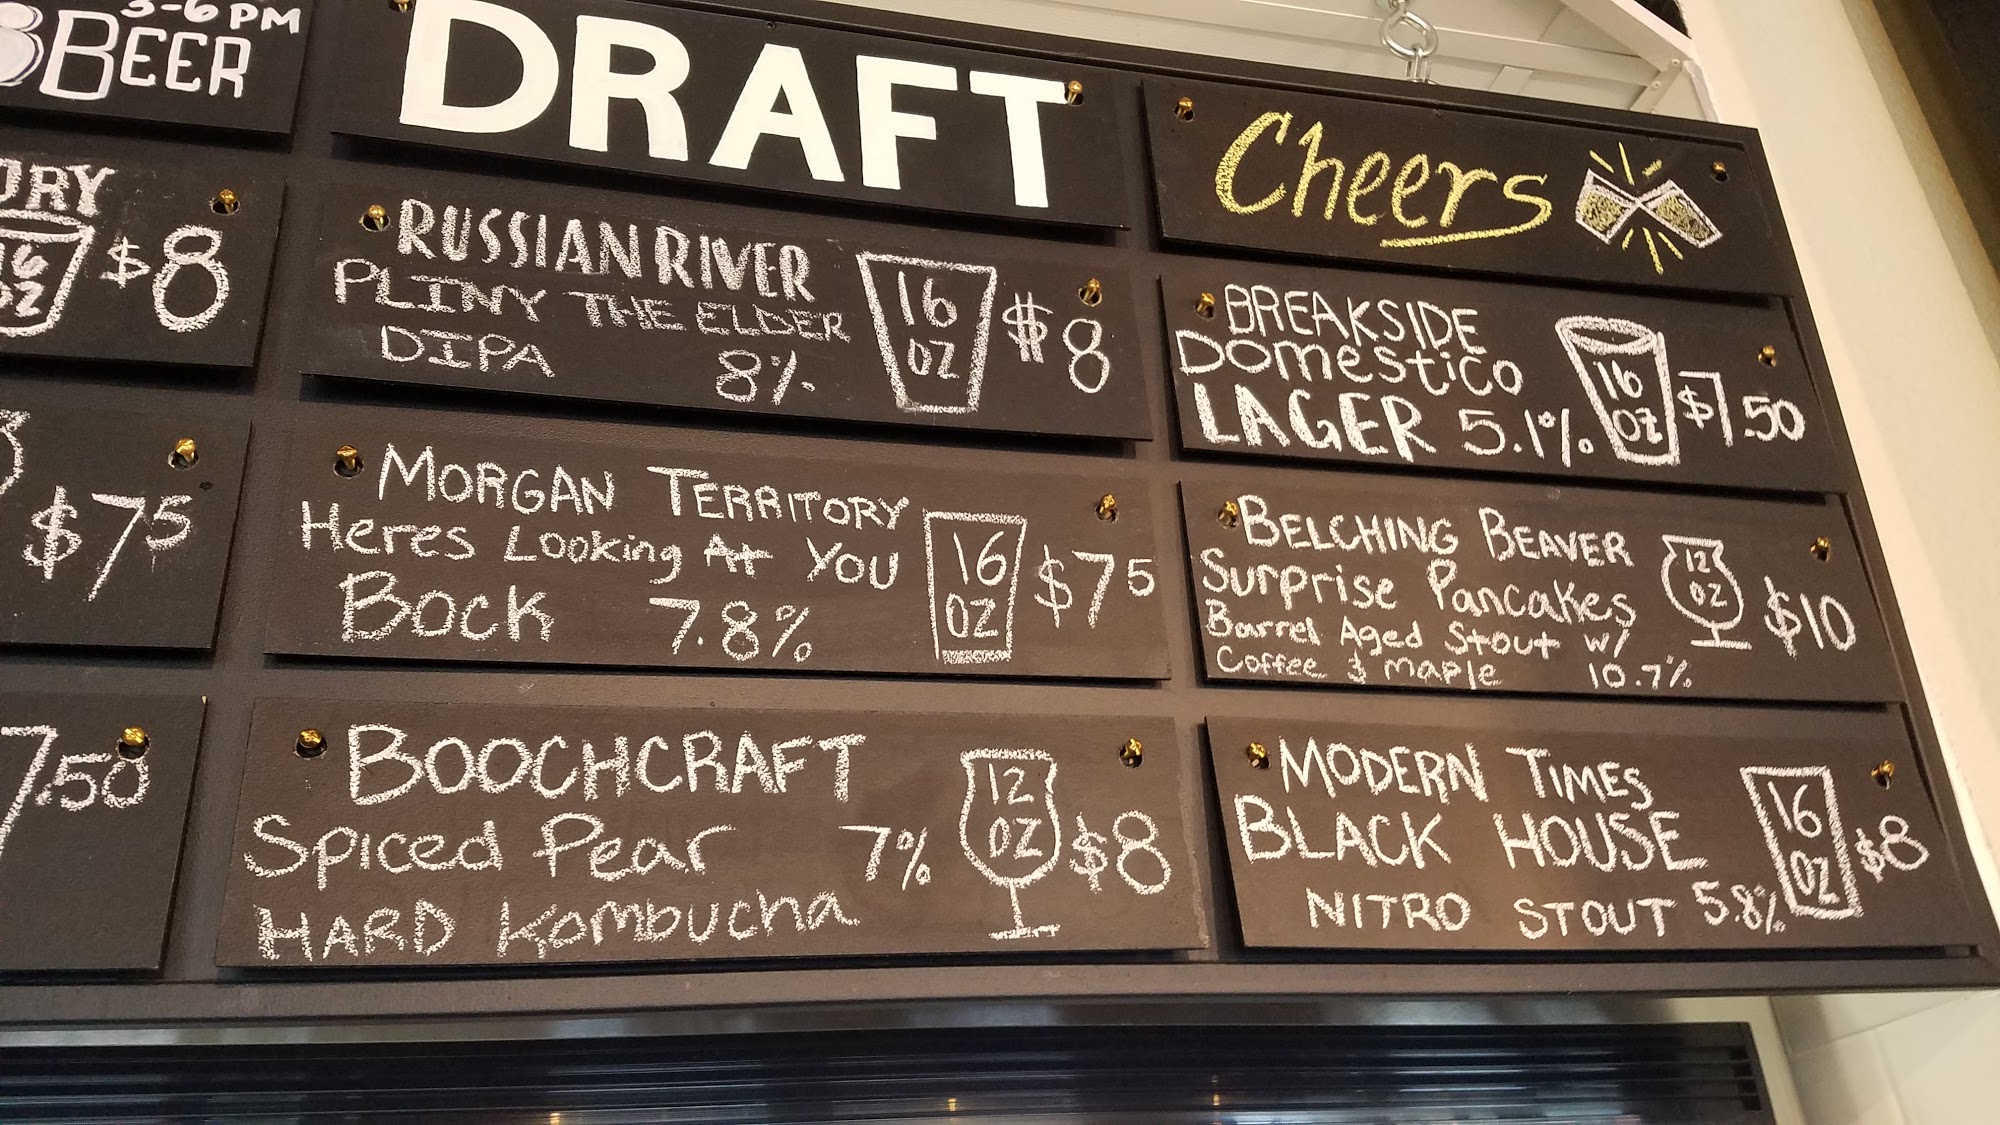 3-6 PM
BEER
$8
16
OZ
$75
7.50
DRAFT
RUSSIAN RIVER
PLINY THE ELDER
DIPA 8%
16
OZ
$8
MORGAN TERRITORY
Heres Looking At YOU
BOCK 7.8%
16
OZ
$75
BOOCHCRAFT
Spiced Pear 7%
HARD Kombucha
12
OZ
$8
Cheers
BREAKSIDE
DOMESTICO
LAGER 5.1%
16
OZ
$7.50
BELCHING BEAVER
Surprise Pancakes
Barrel Aged Stout w/
Coffee & maple 10.7%
12
OZ
$10
MODERN TIMES
BLACK HOUSE
NITRO STOUT 5.8%
16
OZ
$8